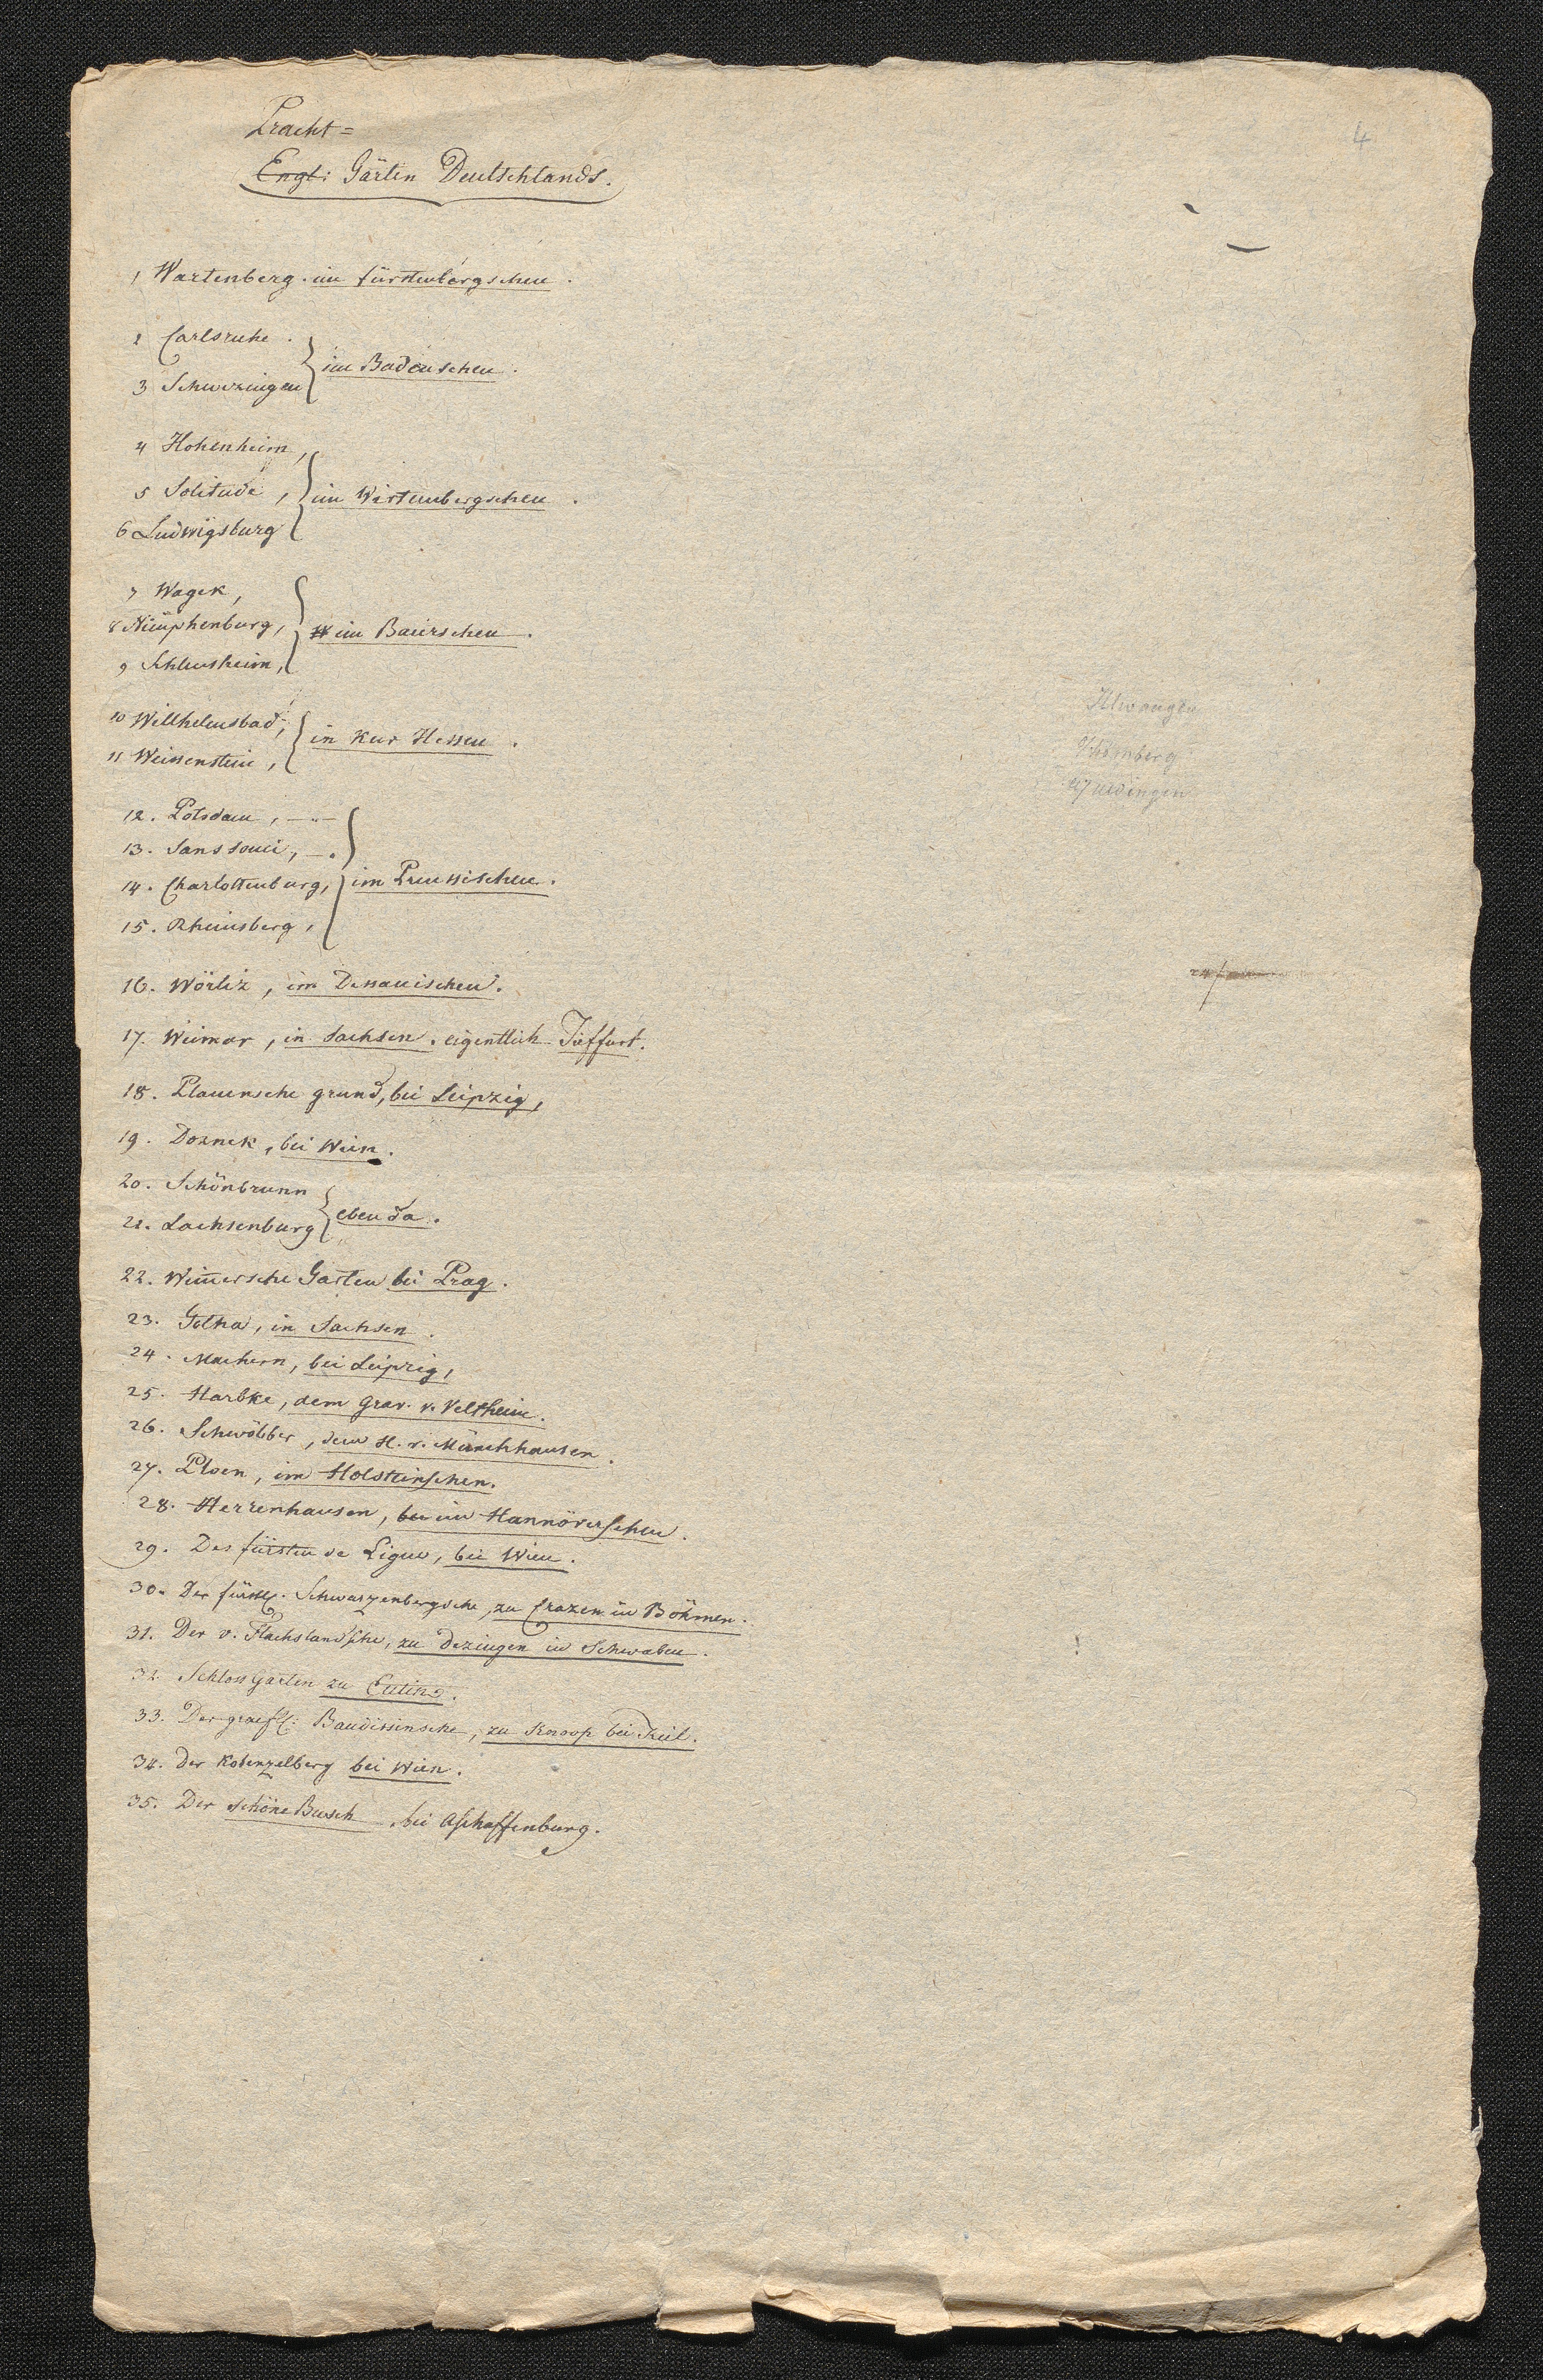 Pracht=
Engl: Gärten Deutschlands.
4
1 Wartenberg. im fürstenbergschen.
2 Carlsruhe.
im Badenschen.
3 Schwezingen
4 Hohenheim,
5 Solitude, im Wirtembergschen.
6 Ludwigsburg
7 Wagek,
8 Nümphenburg, im Baierschen.
9 Schleusheim,
10 Willhelmsbad, in Kur Hessen.
11 Weissenstein,
12. Potsdam,
13. Sanssouci,
14. Charlottenburg, im Preussischen.
15. Rheinsberg,
16. Wörliz, im Dessauischen.
17. Weimar, in Sachsen. eigentlich Tieffurt.
18. Plauensche grund, bei Leipzig,
19. Dornek, bei Wien.
20. Schönbrunn
ebenda.
21. Lachsenburg
22. Wim̄ersche Garten bei Prag.
23. Gotha, in Sachsen.
24. Machern, bei Leipzig,
25. Harbke, dem Grav. v. Veltheim.
26. Schwöbber, dem H. v. Münchhausen.
27. Ploen, im Holsteinschen.
28. Herrenhausen, bei im Hannöverschen.
29. Des fürsten de Ligne, bei Wien.
30. Der fürstl. Schwarzenbergsche, zu Crazen in Böhmen.
31. Der v. Flachslandsche, zu Dezingen in Schwaben.
32. Schloss Garten zu Eutin.
33. Der graefl: Baudissinsche, zu Knoop bei Kiel.
34. Der Kobenzelberg bei Wien.
35. Der schöne Busch, bei Aschaffenburg.